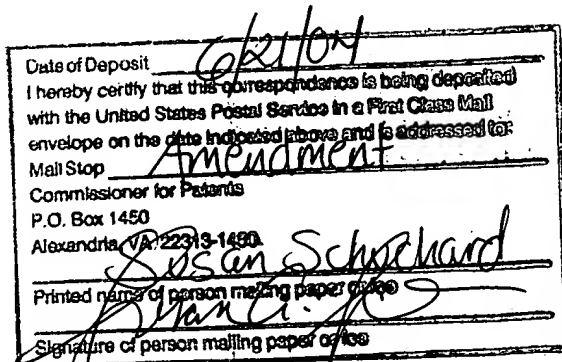 Date of Deposit 6/21/04
I hereby certify that this correspondence is being deposited
with the United States Postal Service in a First Class Mail
envelope on the date indicated above and is addressed to:
Mail Stop Amendment
Commissioner for Patents
P.O. Box 1450
Alexandria, VA 22313-1450.
Susan Schochard
Printed name of person mailing paper or fee
Susan
Signature of person mailing paper or fee